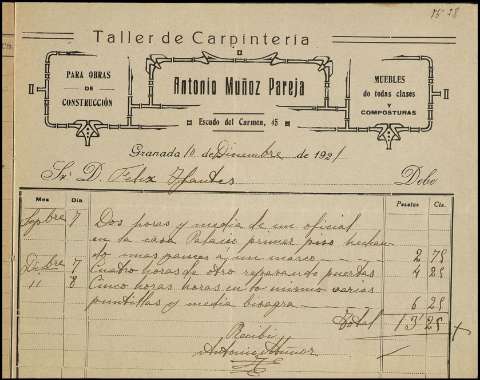 15'28
Taller de Carpintería
PARA OBRAS
DE
CONSTRUCCIÓN
Antonio Muñoz Pareja
Escudo del Carmen, 45
MUEBLES
de todas clases
Y
COMPOSTURAS
Granada 10 de Diciembre de 1921
Sr. D. Felix Ifantes Debe
Mes Día Pesetas Cts.
7 Dos horas y media de un oficial
en la casa Palacio primer piso
do unas a un marco 2 75
Dbre 7 Cuatro horas de otro repasando puertas 4 25
11 8 Cinco horas horas en lo mismo varias
puntillas y media bisagra 6 25
Total 13'25
Recibi
Antonio Muñoz